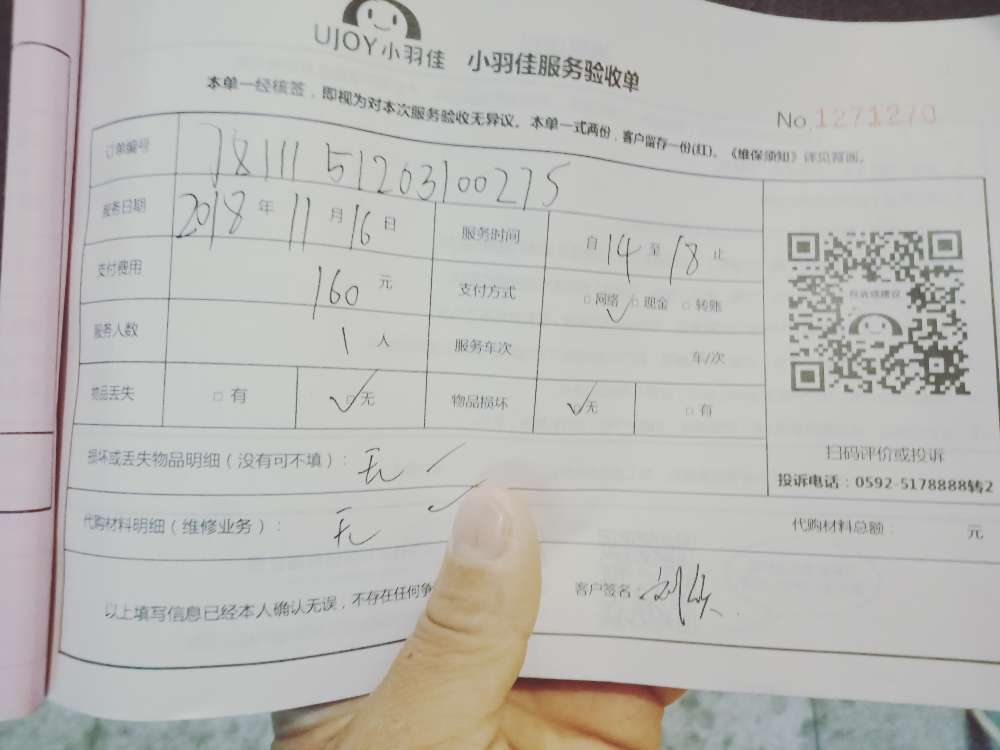 UJOY小羽佳 小羽佳服务验收单
本单一经核签，即视为对本次服务验收无异议。本单一式两份，客户留存一份(红)。《维保须知》详见背面。
No.1271270
订单编号 7811151203100275
服务日期 2018年11月16日 服务时间 自14至18止
支付费用 160元 支付方式 □网络 □现金 □转账
服务人数 1人 服务车次 车/次
物品丢失 □有 □无 物品损坏 □无 □有
投诉或建议
扫码评价或投诉
投诉电话：0592-5178888转2
损坏或丢失物品明细（没有可不填）：无
代购材料明细（维修业务）：无 代购材料总额： 元
以上填写信息已经本人确认无误，不存在任何争 客户签名：刘